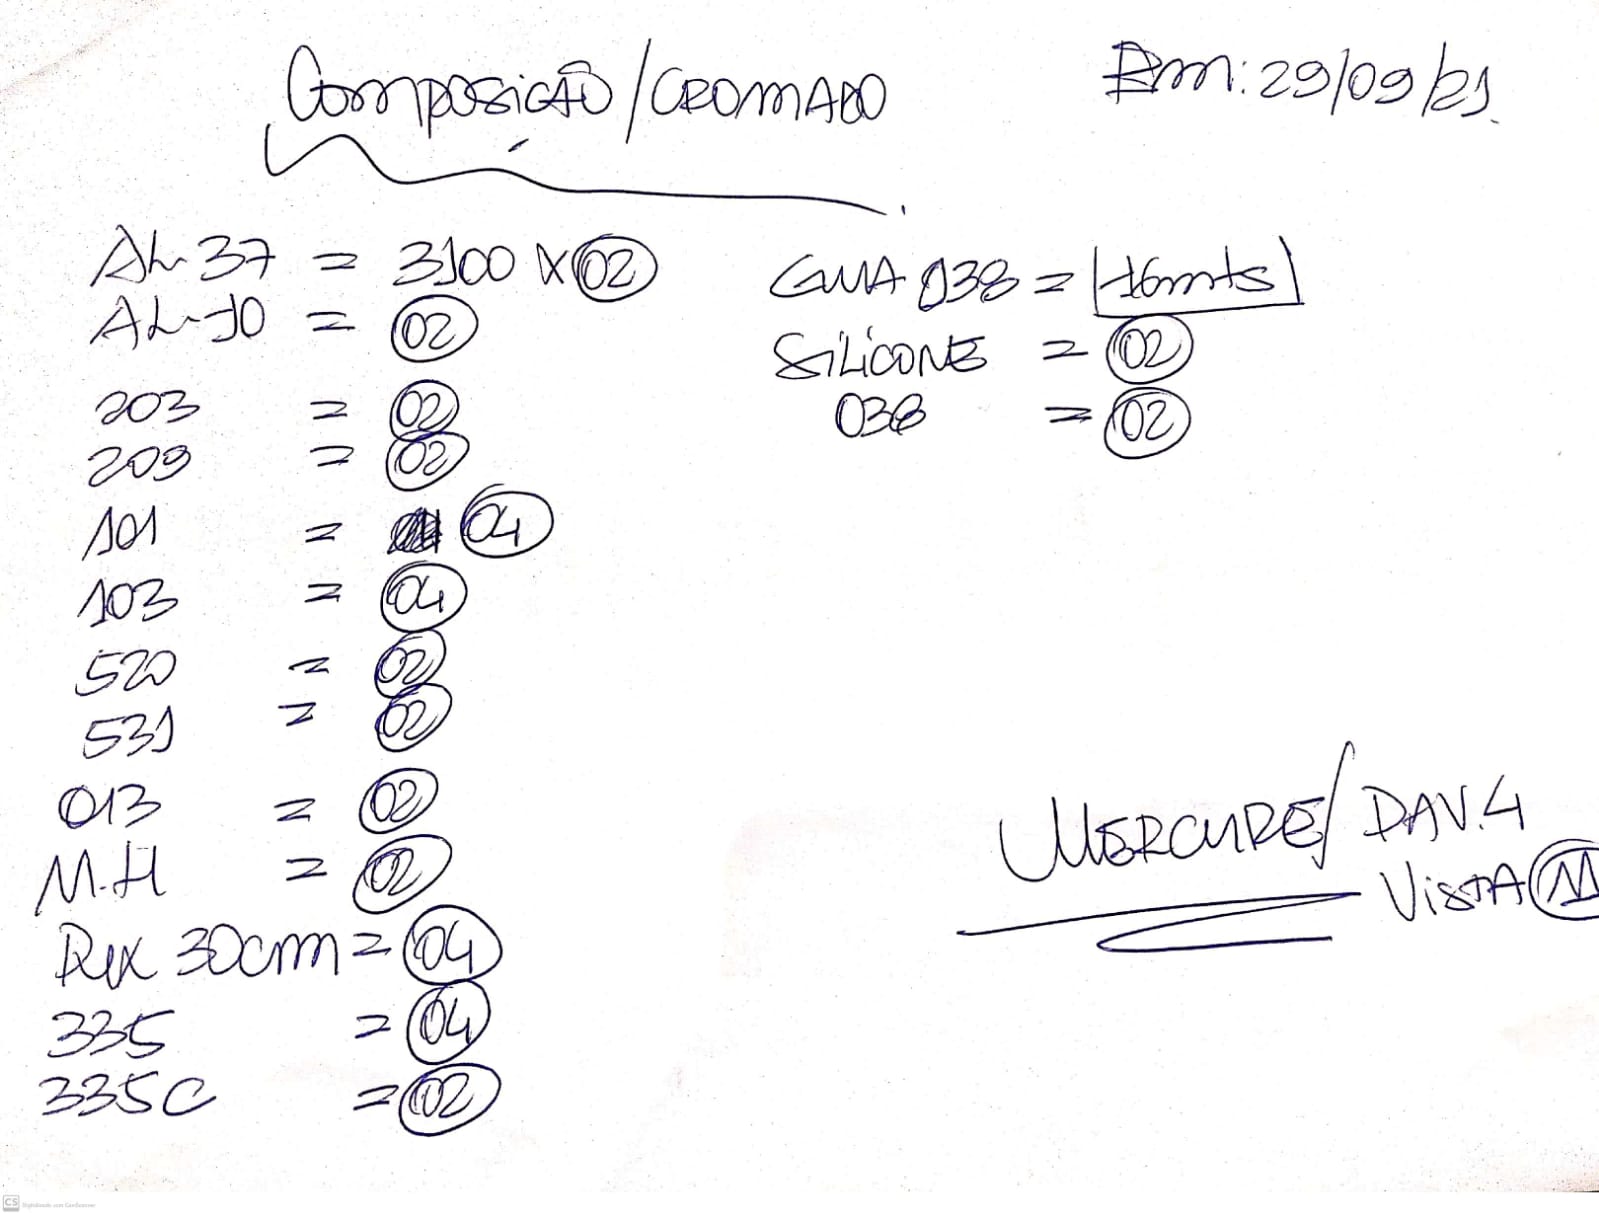 Composição/CROMADO
Em: 29/09/21.
AL-37 = 3100 X 02
AL-10 = 02
203 = 02
209 = 02
101 = 04
103 = 04
520 = 02
531 = 02
013 = 02
M.H = 02
Rex 30cm = 04
335 = 04
335C = 02
GUIA 038 = 16mts
SiLiCONE = 02
038 = 02
MERCURE/ DAV.4
VistA M
CS Digitalizado com CamScanner